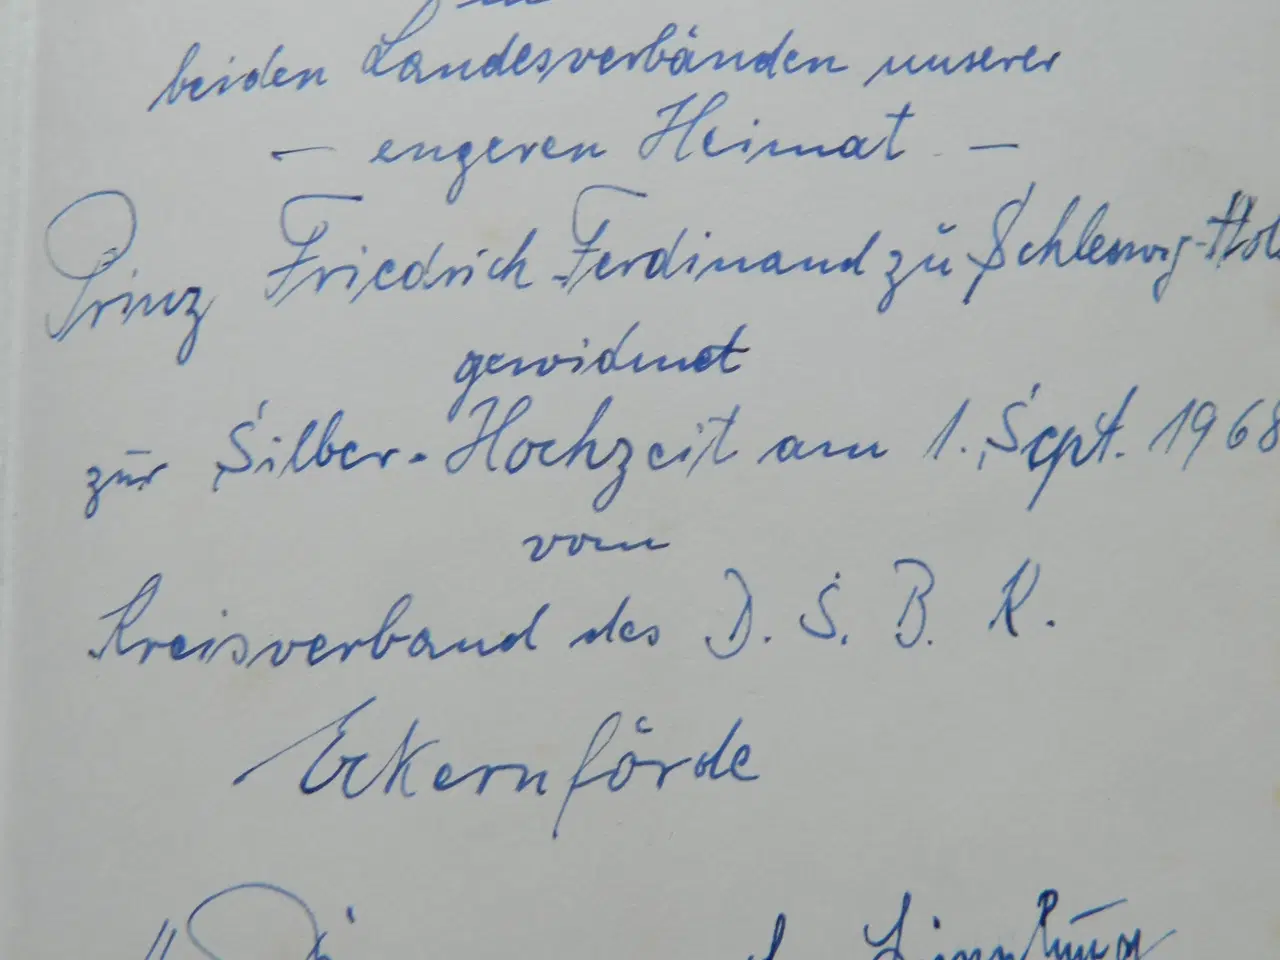 beiden Landesverbänden unserer
– engeren Heimat –
Prinz Friedrich Ferdinand zu Schleswig-Hol
gewidmet
zur Silber-Hochzeit am 1. Sept. 1968
vom
Kreisverband des D. S. B. K.
Eckernförde